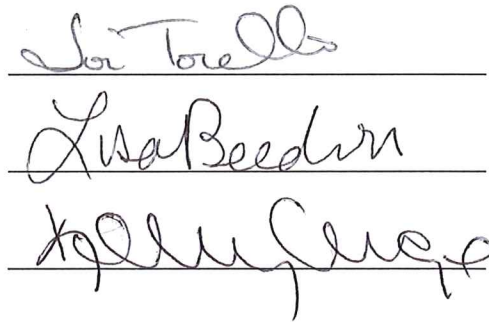 Lori Torello
Lisa Beedon
Kelly